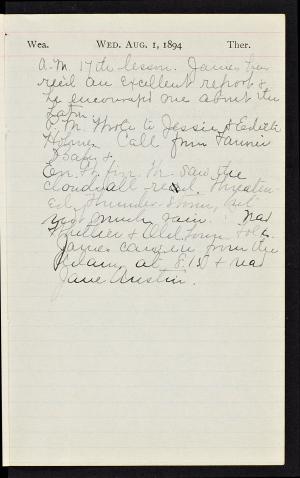 Wea. WED. AUG. 1, 1894 Ther.
A.M. 17th lesson. James has
rec'd an excellent report &
he encouraged me about the
Latin
P.M. Wrote to Jessie & Edith
Holmes Call from Fannie
& Baby &
Em. H. for Mr. saw the
clouds allread threaten-
ed thunder storm, but
not much rain. Read
Whittier & Old
James came in from the
at 8.15 & read
Jane Austin.